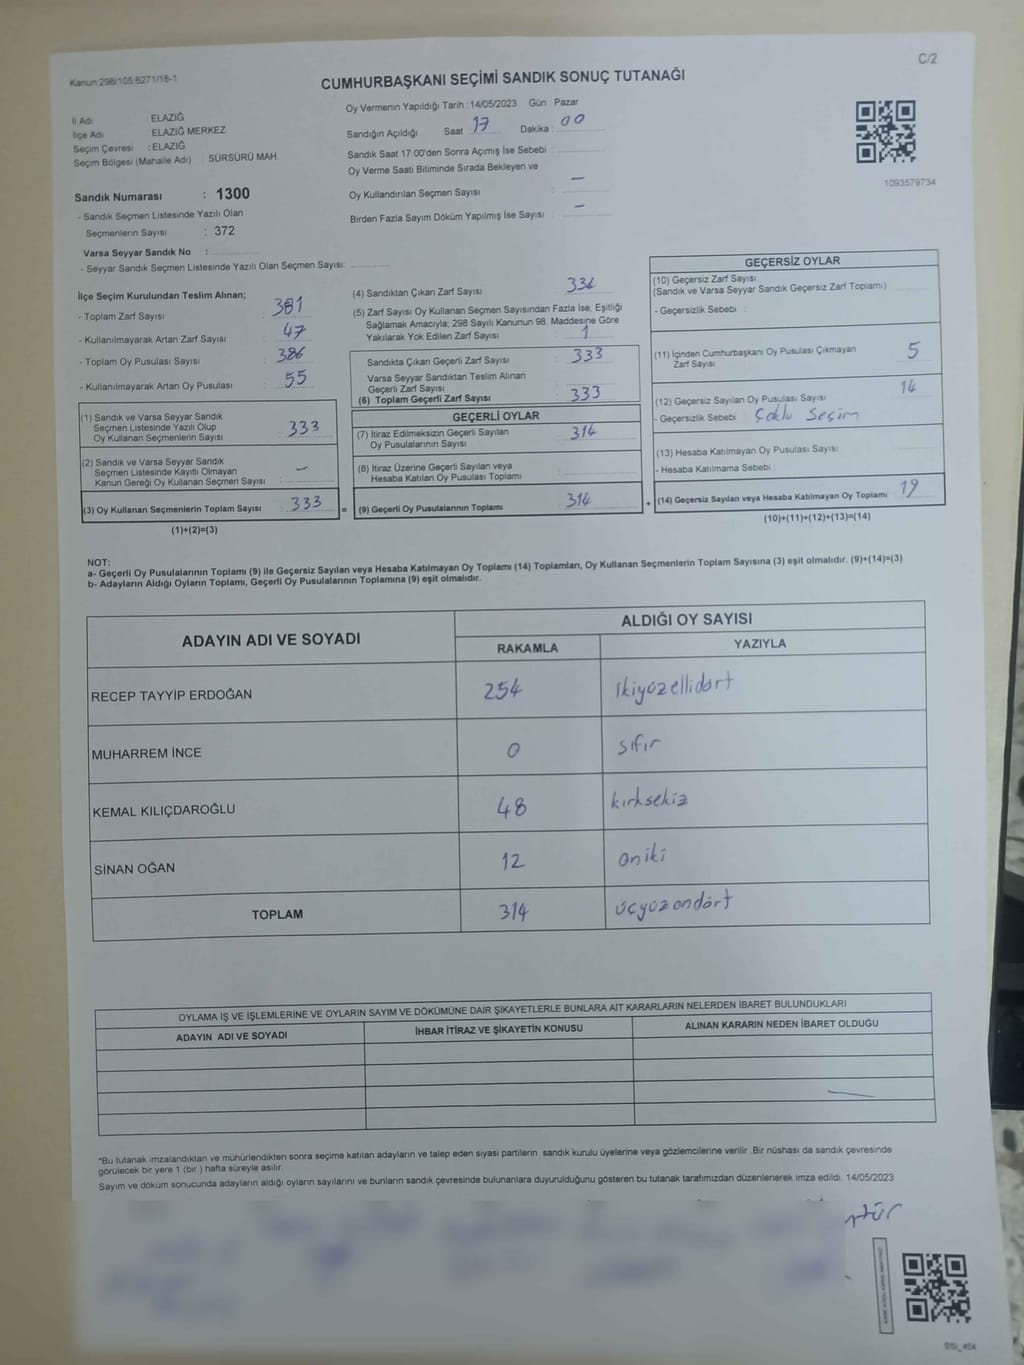 C/2
Kanun:298/105,5271/18-1
CUMHURBAŞKANI SEÇİMİ SANDIK SONUÇ TUTANAĞI
İl Adı ELAZIĞ
İlçe Adı ELAZIĞ MERKEZ
Seçim Çevresi : ELAZIĞ
Seçim Bölgesi (Mahalle Adı) SÜRSÜRÜ MAH.
Sandık Numarası : 1300
- Sandık Seçmen Listesinde Yazılı Olan
Seçmenlerin Sayısı : 372
Varsa Seyyar Sandık No :
- Seyyar Sandık Seçmen Listesinde Yazılı Olan Seçmen Sayısı:
Oy Vermenin Yapıldığı Tarih :14/05/2023 Gün : Pazar
Sandığın Açıldığı Saat 17 Dakika : 00
Sandık Saat 17:00'den Sonra Açımış İse Sebebi :
Oy Verme Saati Bitiminde Sırada Bekleyen ve
Oy Kullandırılan Seçmen Sayısı : –
Birden Fazla Sayım Döküm Yapılmış İse Sayısı : –
1093579734
İlçe Seçim Kurulundan Teslim Alınan;
- Toplam Zarf Sayısı : 381
- Kullanılmayarak Artan Zarf Sayısı : 47
- Toplam Oy Pusulası Sayısı : 386
- Kullanılmayarak Artan Oy Pusulası : 55
(1) Sandık ve Varsa Seyyar Sandık
Seçmen Listesinde Yazılı Olup
Oy Kullanan Seçmenlerin Sayısı : 333
(2) Sandık ve Varsa Seyyar Sandık
Seçmen Listesinde Kayıtlı Olmayan
Kanun Gereği Oy Kullanan Seçmen Sayısı : –
(3) Oy Kullanan Seçmenlerin Toplam Sayısı : 333
(1)+(2)=(3)
(4) Sandıktan Çıkan Zarf Sayısı : 334
(5) Zarf Sayısı Oy Kullanan Seçmen Sayısından Fazla İse, Eşitliği
Sağlamak Amacıyla; 298 Sayılı Kanunun 98. Maddesine Göre
Yakılarak Yok Edilen Zarf Sayısı : 1
Sandıkta Çıkan Geçerli Zarf Sayısı : 333
Varsa Seyyar Sandıktan Teslim Alınan
Geçerli Zarf Sayısı
(6) Toplam Geçerli Zarf Sayısı : 333
GEÇERLİ OYLAR
(7) İtiraz Edilmeksizin Geçerli Sayılan
Oy Pusulalarının Sayısı : 314
(8) İtiraz Üzerine Geçerli Sayılan veya
Hesaba Katılan Oy Pusulası Toplamı :
= (9) Geçerli Oy Pusulalarının Toplamı : 314
GEÇERSİZ OYLAR
(10) Geçersiz Zarf Sayısı
(Sandık ve Varsa Seyyar Sandık Geçersiz Zarf Toplamı) :
- Geçersizlik Sebebi :
(11) İçinden Cumhurbaşkanı Oy Pusulası Çıkmayan
Zarf Sayısı 5
(12) Geçersiz Sayılan Oy Pusulası Sayısı : 14
- Geçersizlik Sebebi : Çoklu Seçim
(13) Hesaba Katılmayan Oy Pusulası Sayısı :
- Hesaba Katılmama Sebebi :
+ (14) Geçersiz Sayılan veya Hesaba Katılmayan Oy Toplamı : 19
(10)+(11)+(12)+(13)=(14)
NOT:
a- Geçerli Oy Pusulalarının Toplamı (9) ile Geçersiz Sayılan veya Hesaba Katılmayan Oy Toplamı (14) Toplamları, Oy Kullanan Seçmenlerin Toplam Sayısına (3) eşit olmalıdır. (9)+(14)=(3)
b- Adayların Aldığı Oyların Toplamı, Geçerli Oy Pusulalarının Toplamına (9) eşit olmalıdır.
ADAYIN ADI VE SOYADI
ALDIĞI OY SAYISI
RAKAMLA YAZIYLA
RECEP TAYYİP ERDOĞAN 254 ikiyüzellidört
MUHARREM İNCE 0 sıfır
KEMAL KILIÇDAROĞLU 48 kırksekiz
SİNAN OĞAN 12 oniki
TOPLAM 314 üçyüzondört
OYLAMA İŞ VE İŞLEMLERİNE VE OYLARIN SAYIM VE DÖKÜMÜNE DAİR ŞİKAYETLERLE BUNLARA AİT KARARLARIN NELERDEN İBARET BULUNDUKLARI
ADAYIN ADI VE SOYADI İHBAR İTİRAZ VE ŞİKAYETİN KONUSU ALINAN KARARIN NEDEN İBARET OLDUĞU
*Bu tutanak imzalandıktan ve mühürlendikten sonra seçime katılan adayların ve talep eden siyasi partilerin sandık kurulu üyelerine veya gözlemcilerine verilir .Bir nüshası da sandık çevresinde
görülecek bir yere 1 (bir ) hafta süreyle asılır.
Sayım ve döküm sonucunda adayların aldığı oyların sayılarını ve bunların sandık çevresinde bulunanlara duyurulduğunu gösteren bu tutanak tarafımızdan düzenlenerek imza edildi. 14/05/2023